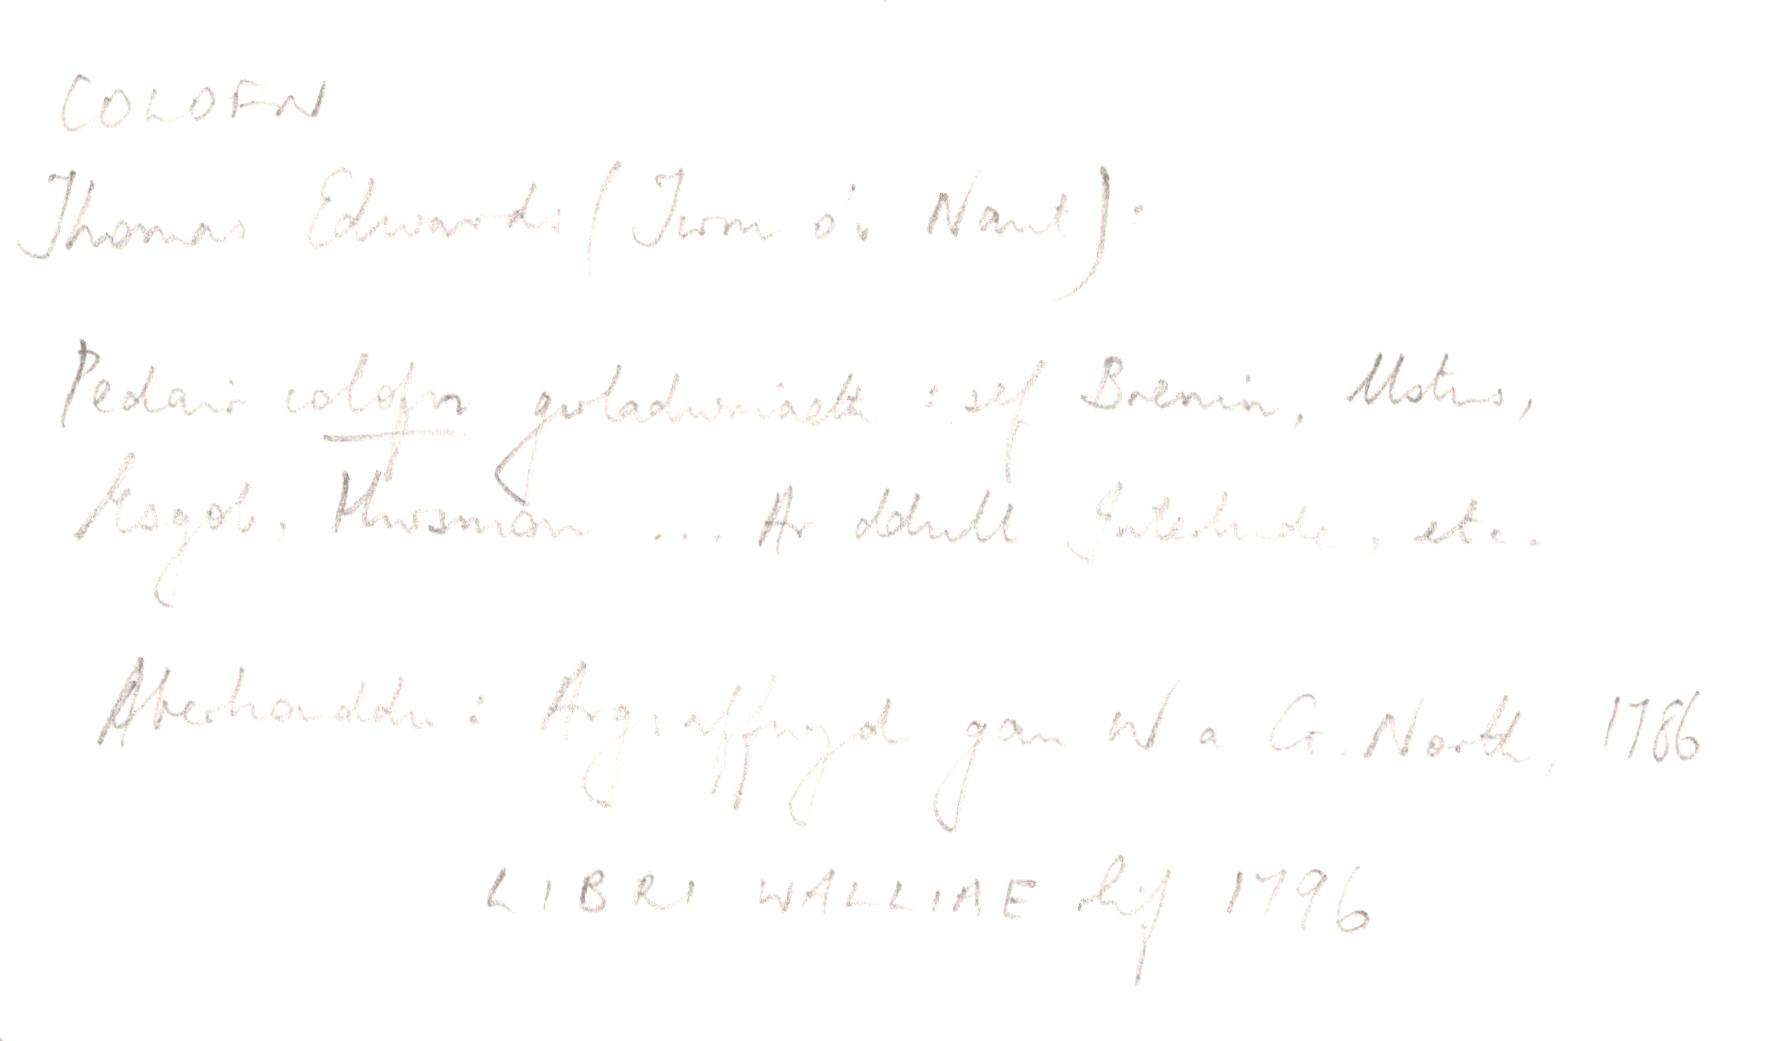 COLOFN
Thomas Edwards (Twm o'r Nant):
Pedair colofn gwladwriaeth : sef Brenin, Ustus,
Esgob, Hwsmon ... Ar ddull Interlude, etc.
Aberhonddu : Argraffwyd gan W a G. North, 1786
LIBRI WALLIAE rhif 1796